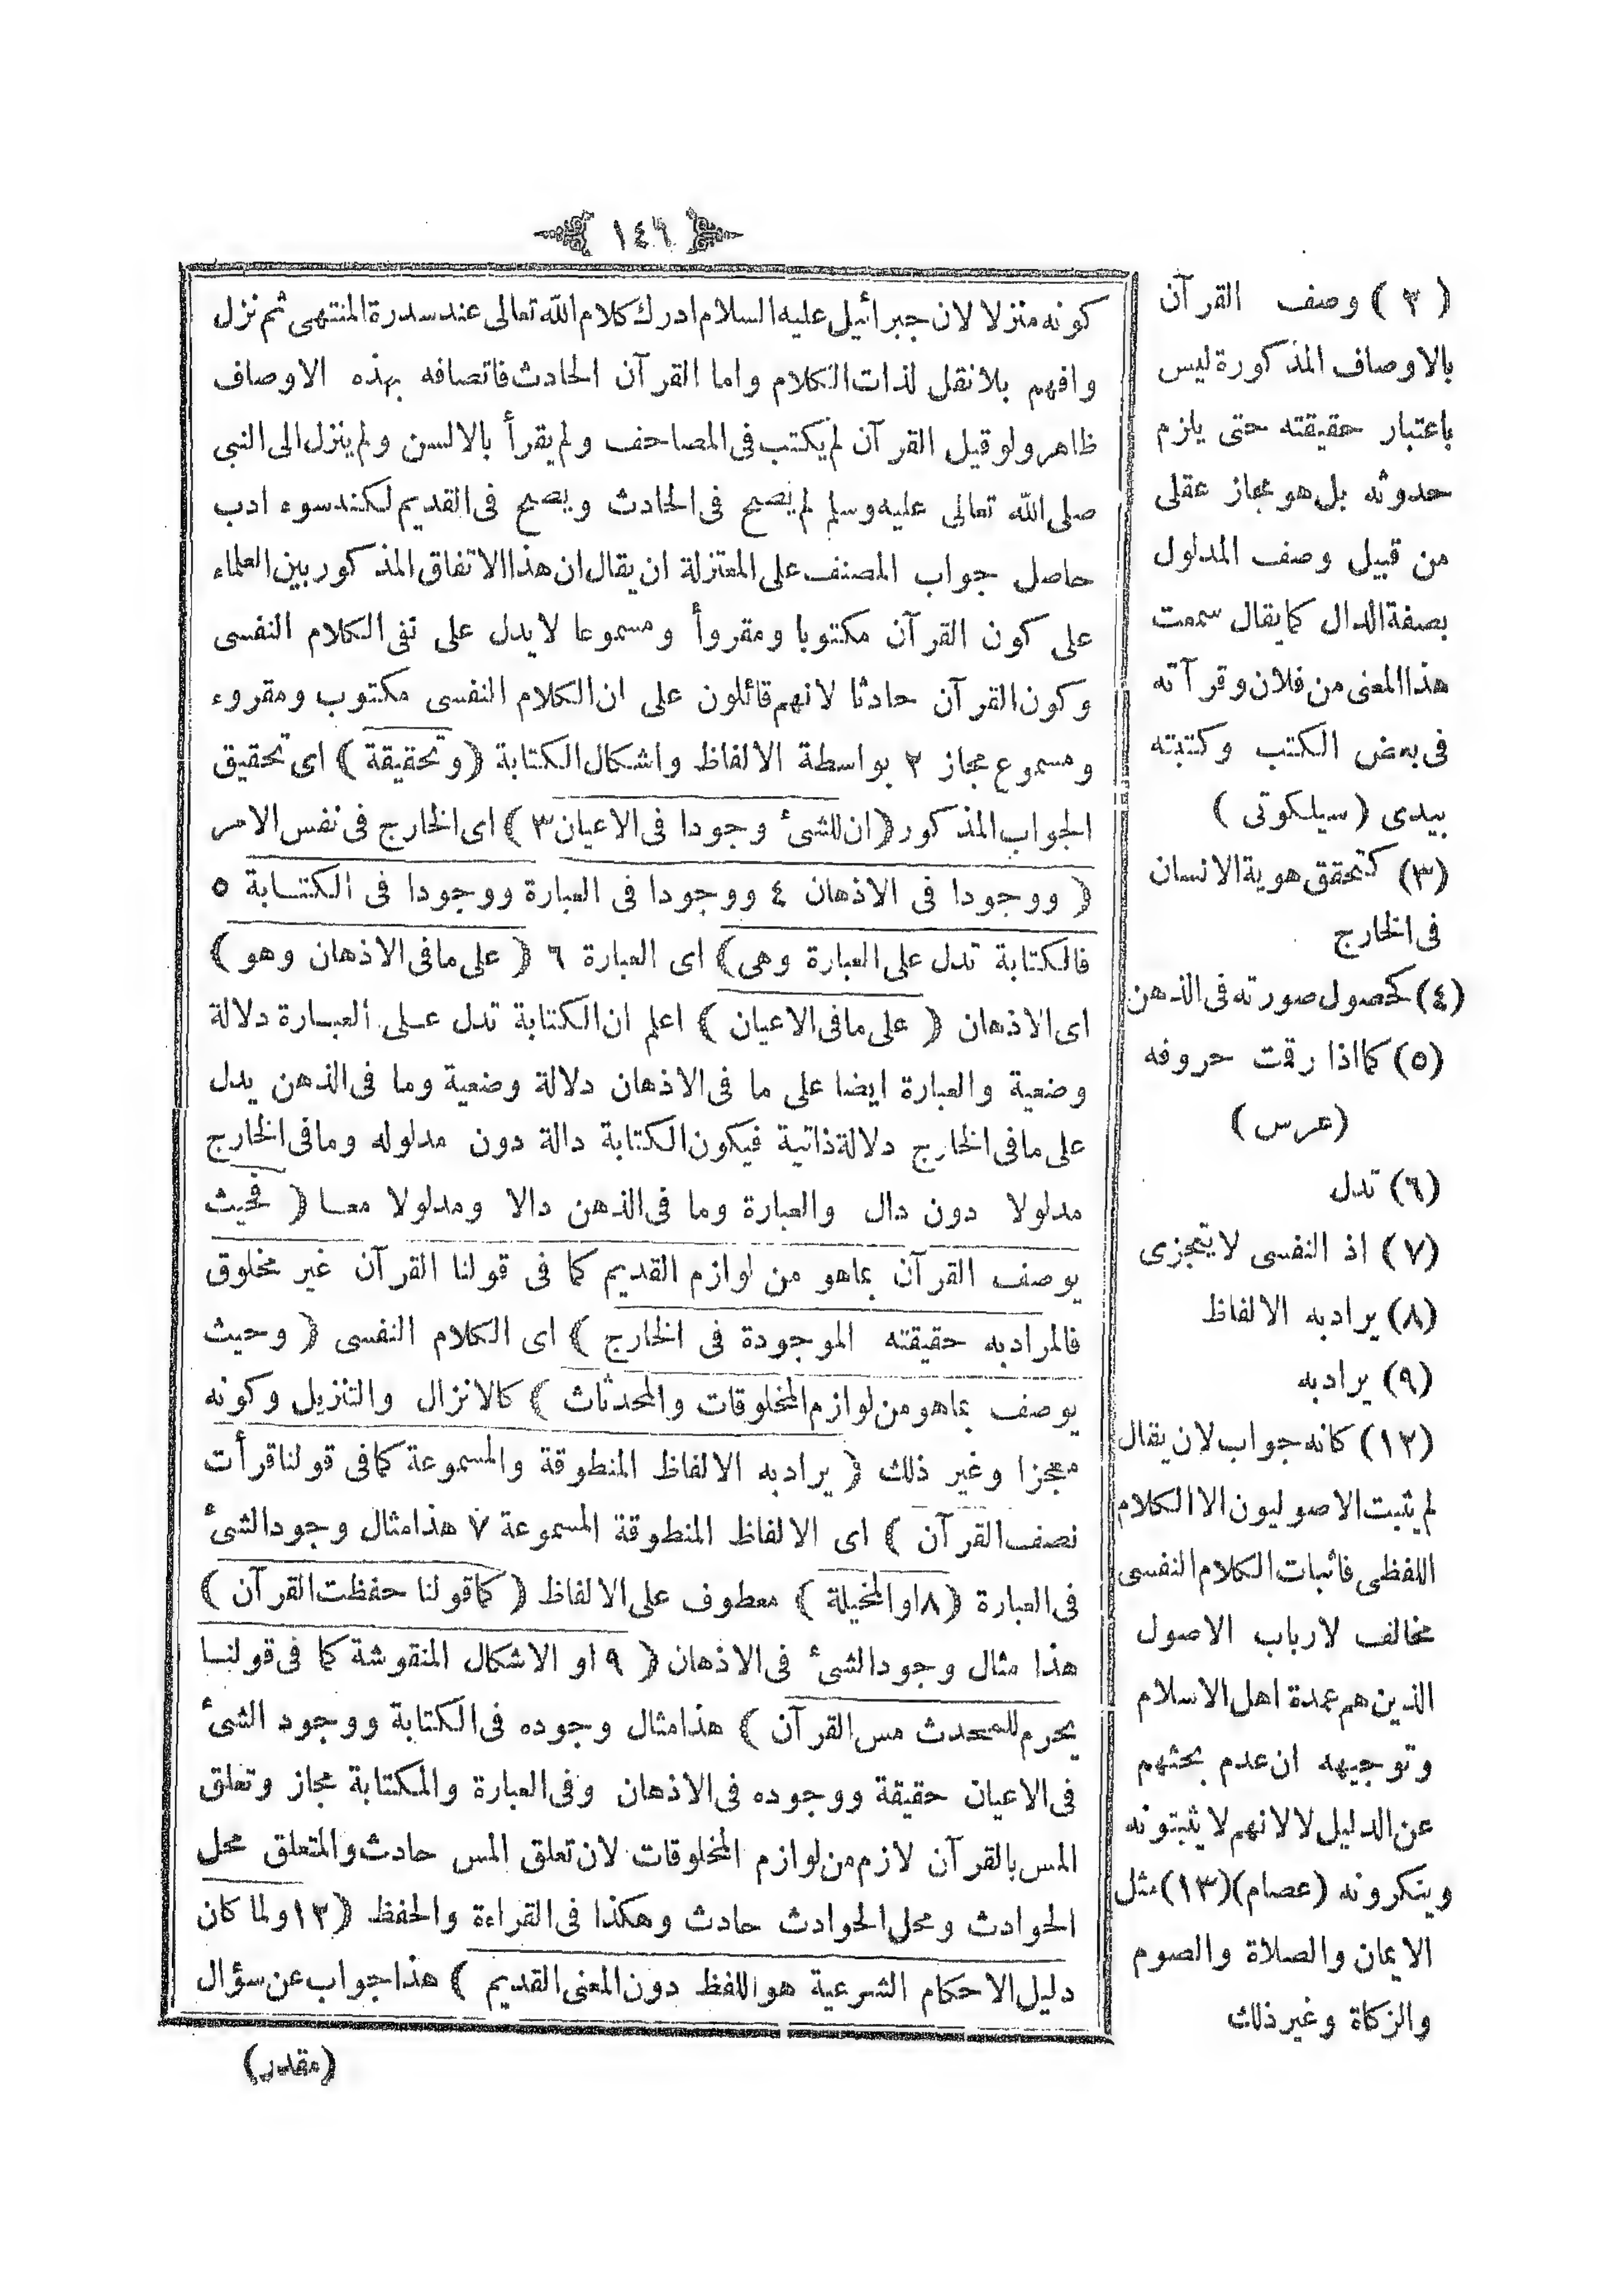 ١٤٦
كونه منزلا لان جبرائيل عليه السلام ادرك كلام الله تعالى عند سدرة المنتهى ثم نزل
وافهم بلانقل لذات الكلام واما القرآن الحادث فاتصافه بهذه الاوصاف
ظاهر ولو قيل القرآن لم يكتب فى المصاحف ولم يقرأ بالالسن ولم ينزل الى النبى
صلى الله تعالى عليه وسلم لم يصح فى الحادث ويصح فى القديم لكنه سوء ادب
حاصل جواب المصنف على المعتزلة ان يقال ان هذا الاتفاق المذكور بين العلماء
على كون القرآن مكتوبا ومقروأ ومسموعا لايدل على نفى الكلام النفسى
وكون القرآن حادثا لانهم قائلون على ان الكلام النفسى مكتوب ومقروء
ومسموع مجاز ٢ بواسطة الالفاظ واشكال الكتابة ﴿ وتحقيقة ﴾ اى تحقيق
الجواب المذكور ﴿ ان للشئ وجودا فى الاعيان ٣ ﴾ اى الخارج فى نفس الامر
﴿ ووجودا فى الاذهان ٤ ووجودا فى العبارة ووجودا فى الكتابة ٥
فالكتابة تدل على العبارة وهى ﴾ اى العبارة ٦ ﴿ على مافى الاذهان وهو ﴾
اى الاذهان ﴿ على مافى الاعيان ﴾ اعلم ان الكتابة تدل على العبارة دلالة
وضعية والعبارة ايضا على ما فى الاذهان دلالة وضعية وما فى الذهن يدل
على مافى الخارج دلالة ذاتية فيكون الكتابة دالة دون مدلوله ومافى الخارج
مدلولا دون دال والعبارة وما فى الذهن دالا ومدلولا معا ﴿ فحيث
يوصف القرآن بماهو من لوازم القديم كما فى قولنا القرآن غير مخلوق
فالمراد به حقيقته الموجودة فى الخارج ﴾ اى الكلام النفسى ﴿ وحيث
يوصف بماهو من لوازم المخلوقات والمحدثات ﴾ كالانزال والتنزيل وكونه
معجزا وغير ذلك ﴿ يراد به الالفاظ المنطوقة والمسموعة كمافى قولنا قرأت
نصف القرآن ﴾ اى الالفاظ المنطوقة المسموعة ٧ هذا مثال وجود الشئ
فى العبارة ﴿ ٨ او المخيلة ﴾ معطوف على الالفاظ ﴿ كماقولنا حفظت القرآن ﴾
هذا مثال وجود الشئ فى الاذهان ﴿ ٩ او الاشكال المنقوشة كما فى قولنا
يحرم للمحدث مس القرآن ﴾ هذا مثال وجوده فى الكتابة ووجود الشئ
فى الاعيان حقيقة ووجوده فى الاذهان وفى العبارة والمكتابة مجاز وتعلق
المس بالقرآن لازم من لوازم المخلوقات لان تعلق المس حادث والمتعلق محل
الحوادث ومحل الحوادث حادث وهكذا فى القراءة والحفظ ﴿ ١٢ ولما كان
دليل الاحكام الشرعية هو اللفظ دون المعنى القديم ﴾ هذا جواب عن سؤال
(مقدر)
(٢) وصف القرآن
بالاوصاف المذكورة ليس
باعتبار حقيقته حتى يلزم
حدوثه بل هو مجاز عقلى
من قبيل وصف المدلول
بصفة الدال كمايقال سمعت
هذا المعنى من فلان وقرآته
فى بعض الكتب وكتبته
بيدى (سيلكوتى)
(٣) كتحقق هوية الانسان
فى الخارج
(٤) كحصول صورته فى الذهن
(٥) كما اذا رقمت حروفه
(عرس)
(٦) تدل
(٧) اذ النفسى لايتجزى
(٨) يراد به الالفاظ
(٩) يراد به
(١٢) كانه جواب لان يقال
لم يثبت الاصوليون الا الكلام
اللفظى فاثبات الكلام النفسى
مخالف لارباب الاصول
الذين هم عمدة اهل الاسلام
وتوجيهه ان عدم بحثهم
عن الدليل لا لانهم لايثبتونه
وينكرونه (عصام) (١٣) مثل
الايمان والصلاة والصوم
والزكاة وغير ذلك